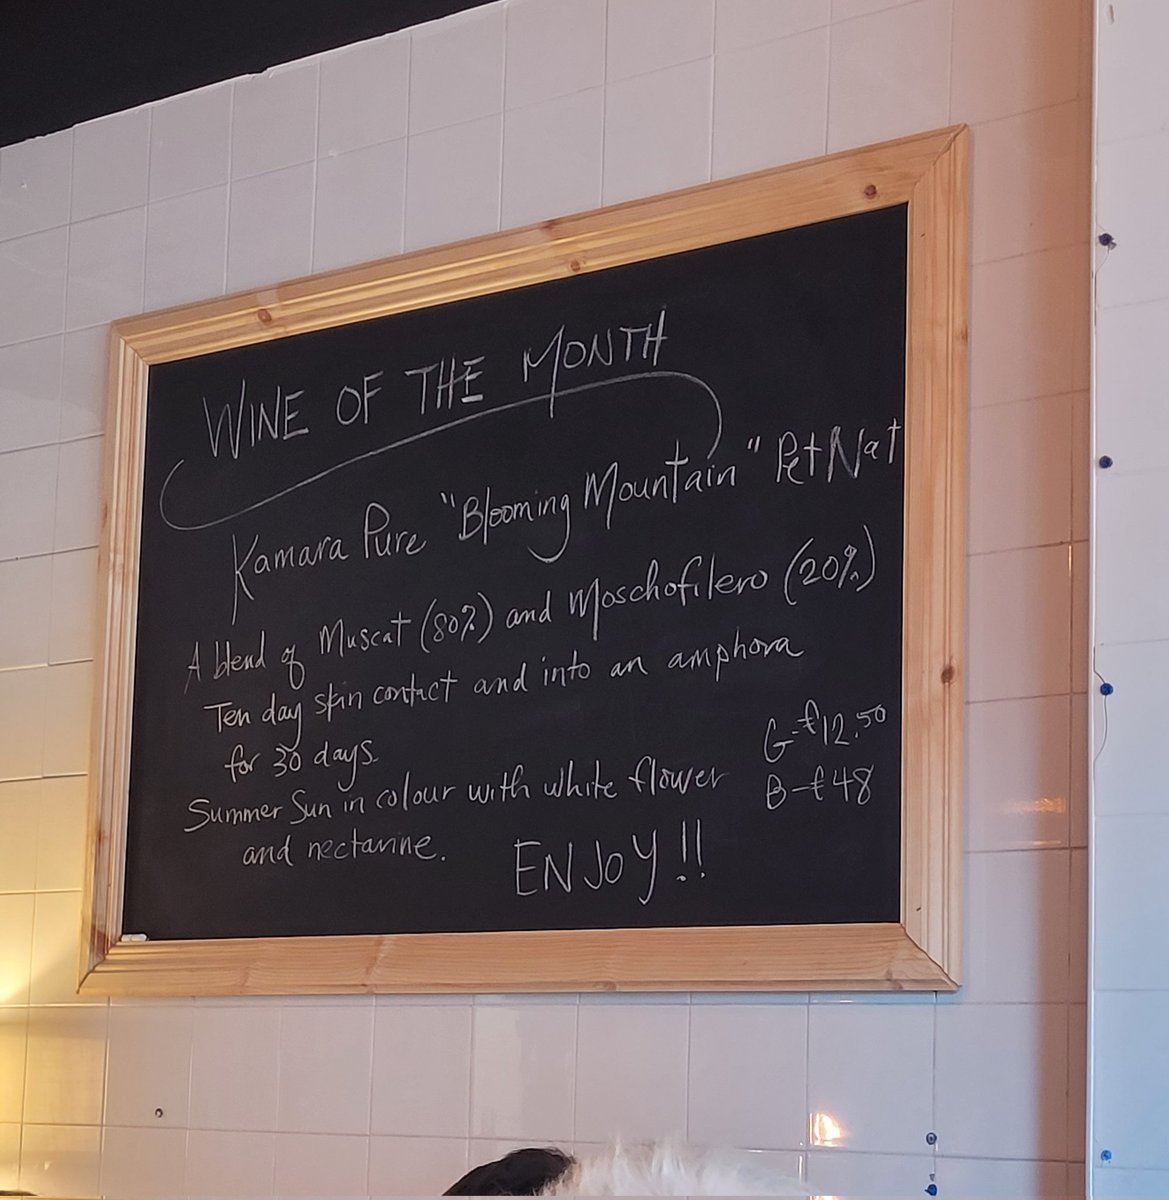 WINE OF THE MONTH
Kamara Pure "Blooming Mountain" Pet Nat
A blend of Muscat (80%) and Moschofilero (20%)
Ten day skin contact and into an amphora
for 30 days.
Summer Sun in colour with white flower
and nectarine.
G-£12.50
B-£48
ENJOY!!